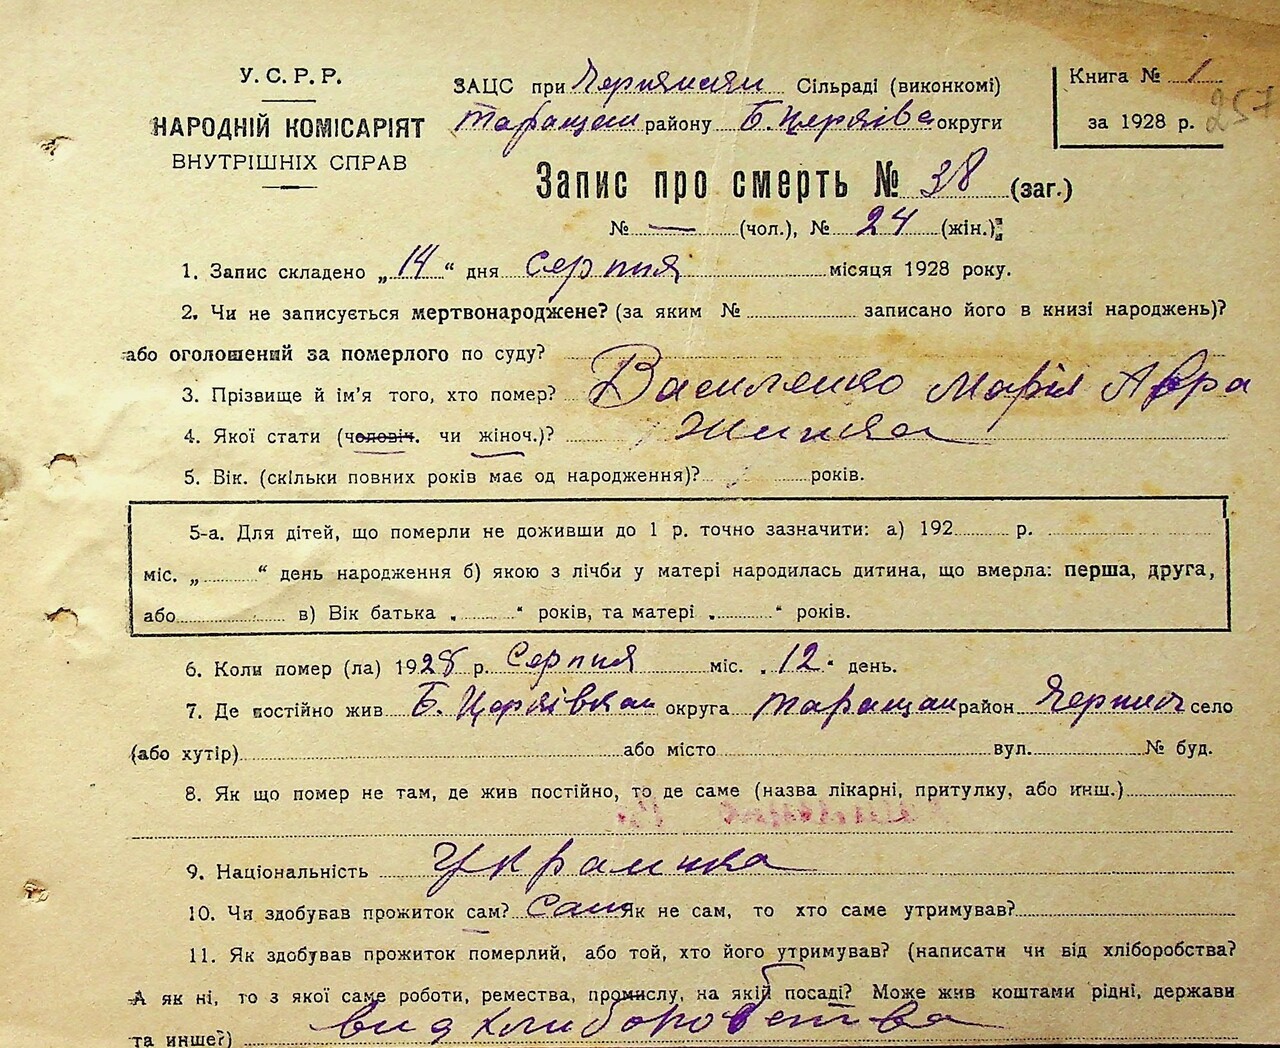 У.С.Р.Р.
НАРОДНІЙ КОМІСАРІЯТ
ВНУТРІШНІХ СПРАВ
ЗАЦС при Сільраді (виконкомі)
Таращан району Б.Церківс округи
Книга № 1
за 1928 р. 257
Запис про смерть № 38 (заг.)
№ — (чол.), № 24 (жін.)
1. Запис складено „14“ дня Серпня місяця 1928 року.
2. Чи не записується мертвонароджене? (за яким № записано його в книзі народжень)?
або оголошений за померлого по суду?
3. Прізвище й ім'я того, хто помер? Василенко Марія Авра
4. Якої стати (чоловіч. чи жіноч.)? Жинка
5. Вік. (скільки повних років має од народження)? років.
5-а. Для дітей, що померли не доживши до 1 р. точно зазначити: а) 192 р.
міс. „ “ день народження б) якою з лічби у матері народилась дитина, що вмерла: перша, друга,
або в) Вік батька „ “ років, та матері „ “ років.
6. Коли помер (ла) 1928 р. Серпня міс. „12“ день.
7. Де постійно жив Б.Церківскан округа Таращан район село
(або хутір) або місто вул. № буд.
8. Як що помер не там, де жив постійно, то де саме (назва лікарні, притулку, або инш.)
9. Національність Украинка
10. Чи здобував прожиток сам? Сам Як не сам, то хто саме утримував?
11. Як здобував прожиток померлий, або той, хто його утримував? (написати чи від хліборобства?
А як ні, то з якої саме роботи, ремества, промислу, на якій посаді? Може жив коштами рідні, держави
та инше?) вид хлиборобства